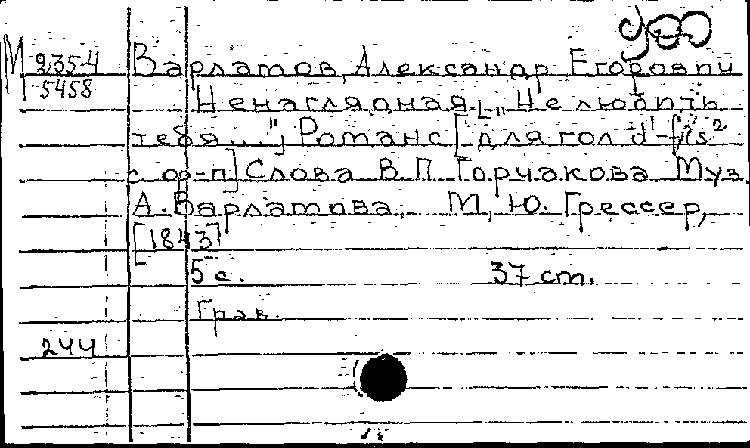 М 235-4
5458
Варламов, Александр Егорович
Ненаглядная. [„Не любить
тебя..."] Романс [для гол. d'-fis²
с ф-п] Слова В. П. Горчакова Муз.
А. Варламова. М, Ю. Грессер,
[1843]
5 с. 37 cm.
Грав.
244